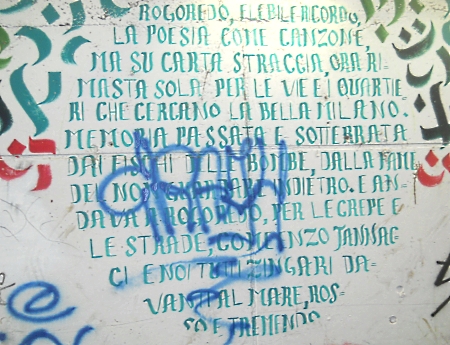 ROGOREDO, FLEBILE RICORDO,
LA POESIA COME CANZONE,
MA SU CARTA STRACCIA, ORA RI=
MASTA SOLA PER LE VIE E I QUARTIE
RI CHE CERCANO LA BELLA MILANO.
MEMORIA PASSATA E SOTTERRATA
DAI FISCHI DELLE BOMBE, DALLA FAME
DEL NON GUARDARE INDIETRO. E AN=
DAVA A ROGOREDO, PER LE CREPE E
LE STRADE, COME ENZO JANNAC
CI E NOI TUTTI ZINGARI DA=
VANTI AL MARE, ROS=
SO E TREMENDO